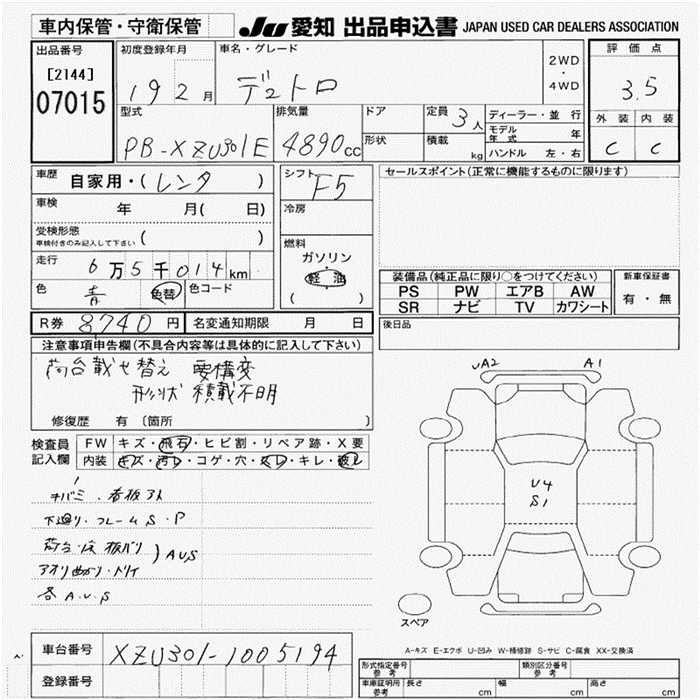 車内保管・守衛保管
JU 愛知 出品申込書 JAPAN USED CAR DEALERS ASSOCIATION
出品番号
[2144]
07015
初度登録年月
19 2 月
車名・グレード
デュトロ
2WD
・
4WD
評価点
3.5
外装 内装
C C
型式
PB-XZU301E
排気量
4890cc
ドア
形状
定員
3人
積載
kg
ディーラー・並行
モデル年式 年
ハンドル 左・右
車歴 自家用・(レンタ )
車検 年 月( 日)
受検形態
車検付きのみ記入して下さい ( )
走行 6万5千014km
色 青 色替 色コード
シフト
F5
冷房
燃料
ガソリン
軽油
( )
セールスポイント(正常に機能するものに限ります)
装備品(純正品に限り○をつけてください)
PS PW エアB AW
SR ナビ TV カワシート
新車保証書
有・無
R券 8740 円 名変通知期限 月 日
後日品
注意事項申告欄(不具合内容等は具体的に記入して下さい)
荷台載せ替え 要構変
形状 積載不明
修復歴 有 〔箇所 〕
検査員記入欄
FW キズ・飛石・ヒビ割・リペア跡・X要
内装 キズ・汚レ・コゲ・穴・スレ・キレ・破レ
キバミ・看板アト
下廻り・フレーム S・P
荷台・床 板バリ ) AUS
アオリ曲がり・ドライ
各 A.U.S
UA2 A1
U4
S1
スペア
A-キズ E-エクボ U-凹み W-補修跡 S-サビ C-腐食 XX-交換済
車台番号 XZU301-1005194
登録番号
形式指定番号
参考
類別区分番号
参考
車庫証明用
参考
長さ cm 幅 cm 高さ cm